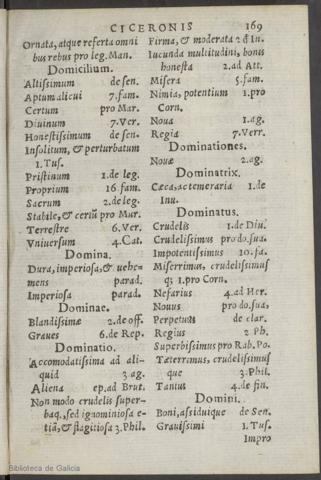 CICERONIS 169
Ornata, atque referta omni
bus rebus pro leg. Man.
Domicilium.
Altißimum de sen.
Aptum alicui 7. fam.
Certum pro Mar.
Diuinum 7. Ver.
Honestißimum de sen.
Insolitum, & perturbatum
1. Tus.
Pristinum 1. de leg.
Proprium 16. fam.
Sacrum 2. de leg.
Stabile, & certũ pro Mur.
Terrestre 6. Ver.
Vniuersum 4. Cat.
Domina.
Dura, imperiosa, & uehe-
mens parad.
Imperiosa parad.
Dominae.
Blandißimæ 2. de off.
Graues 6. de Rep.
Dominatio.
Accomodatißima ad ali-
quid 3. ag.
Aliena ep. ad Brut.
Non modo crudelis super-
baq., sed ignominiosa e-
tiã, & flagitiosa 3. Phil.
Firma, & moderata 2. d In.
Iucunda multitudini, bonis
honesta 2. ad Att.
Misera 5. fam.
Nimia, potentium 1. pro
Corn.
Noua 1. ag.
Regia 7. Verr.
Dominationes.
Nouæ 2. ag.
Dominatrix.
Cæca, ac temeraria 1. de
Inu.
Dominatus.
Crudelis 1. de Diu.
Crudelißimus pro do. sua.
Impotentißimus 10. fa.
Miserrimus, crudelißimus
q; 1. pro Corn.
Nefarius 4. ad Her.
Nouus pro do. sua,
Perpetuus de clar.
Regius 2 Ph.
Superbißimus pro Rab. Po.
Taeterrimus, crudelißimus
que 3. Phil.
Tantus 4. de fin.
Domini.
Boni, aßiduique de Sen.
Grauißimi 1. Tus.
Impro
Biblioteca de Galicia